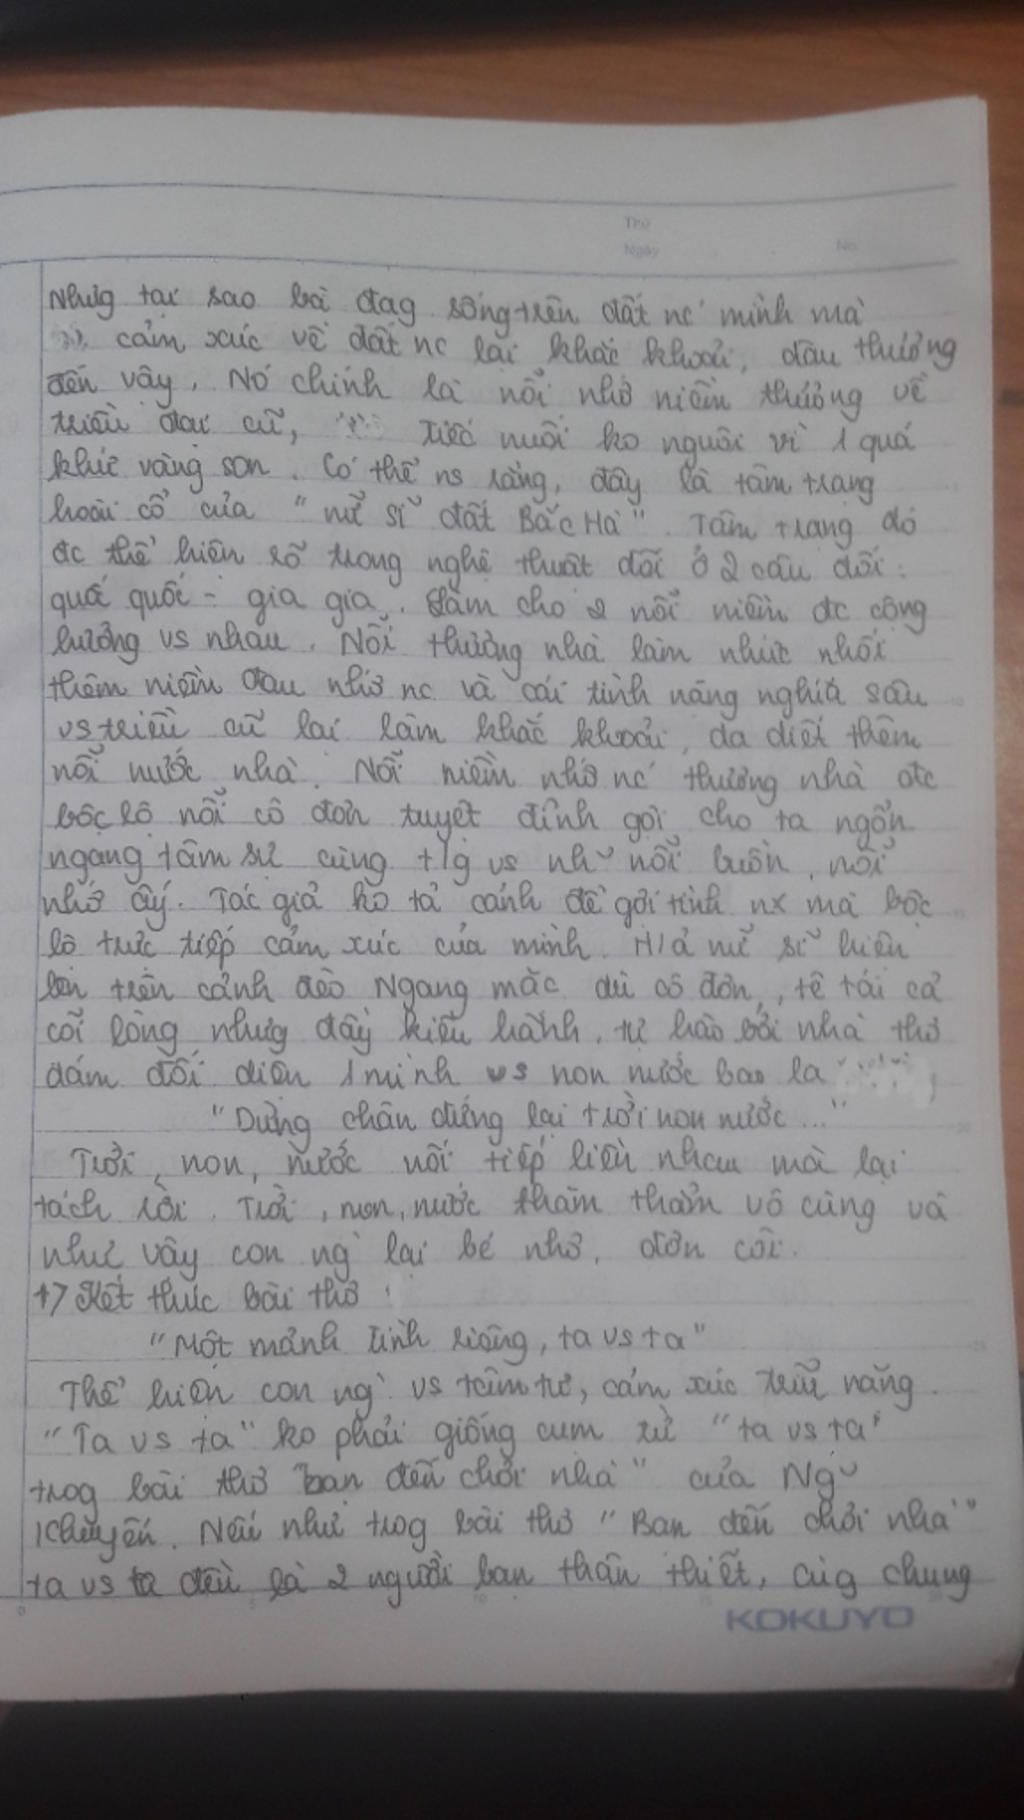 Thứ
Ngày No
Nhưg tại sao bà đag sống trên đất nc mình mà
cảm xúc về đất nc lại khắc khoải, đau thương
đến vậy. Nó chính là nỗi nhớ niềm thương về
triều đại cũ, tiếc nuối ko nguôi vì 1 quá
khứ vàng son. Có thể ns rằng, đây là tâm trạng
hoài cổ của "nữ sĩ đất Bắc Hà". Tâm trạng đó
đc thể hiện rõ trong nghệ thuật đối ở 2 câu đối:
quá quốc - gia gia. Làm cho 2 nỗi niềm đc cộng
hưởng vs nhau. Nỗi thương nhà làm nhức nhối
thêm niềm đau nhớ nc và cái tình nặng nghĩa sâu
vs triều cũ lại làm khắc khoải, da diết thêm
nỗi nước nhà. Nỗi niềm nhớ nc thương nhà đc
bộc lộ nỗi cô đơn tuyệt đỉnh gợi cho ta ngổn
ngang tâm sự cùng t/g vs nh~ nỗi buồn, nỗi
nhớ ấy. Tác giả ko tả cảnh để gợi tình nx mà bộc
lộ trực tiếp cảm xúc của mình. H/ả nữ sĩ hiện
lên trên cảnh đèo Ngang mặc dù cô đơn, tê tái cả
cõi lòng nhưg đầy kiêu hãnh, tự hào bởi nhà thơ
dám đối diện 1 mình vs non nước bao la
"Dừng chân đứng lại trời non nước..."
Trời, non, nước nối tiếp liền nhau mà lại
tách rời. Trời, non, nước thăm thẳm vô cùng và
như vậy con ng` lại bé nhỏ, đơn côi.
+> Kết thúc bài thơ:
"Một mảnh tình riêng, ta vs ta"
Thể hiện con ng` vs tâm tư, cảm xúc trĩu nặng.
"Ta vs ta" ko phải giống cụm từ "ta vs ta"
trog bài thơ "bạn đến chơi nhà" của Ng~
Khuyến. Nếu như trog bài thơ "Bạn đến chơi nhà"
ta vs ta đều là 2 người bạn thân thiết, cùg chung
KOKUYO